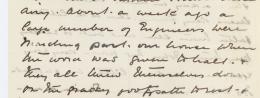 airy. About a week ago a
large number of Engineers were
marching past our house when
the word was given to halt. &
they all threw themselves down
on the grassy footpath to rest &